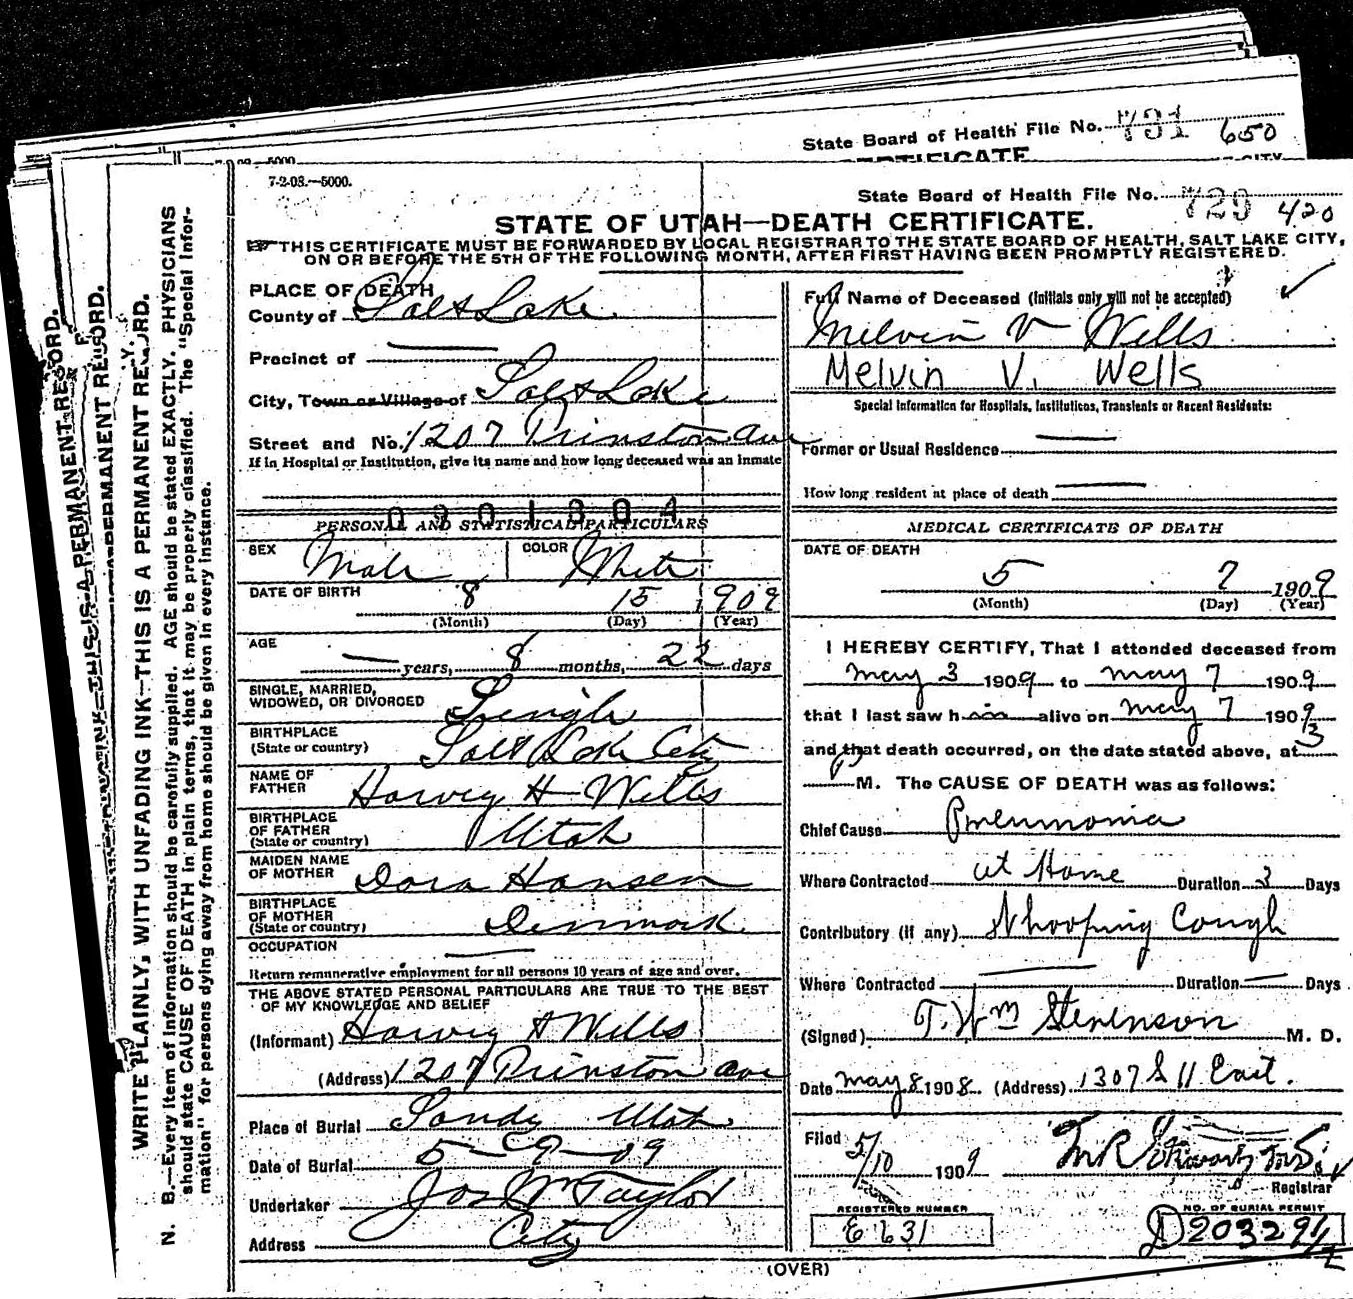 State Board of Health File No. 731 650
CERTIFICATE
7-2-08.—5000.
State Board of Health File No. 729 420
STATE OF UTAH—DEATH CERTIFICATE.
THIS CERTIFICATE MUST BE FORWARDED BY LOCAL REGISTRAR TO THE STATE BOARD OF HEALTH, SALT LAKE CITY,
ON OR BEFORE THE 5TH OF THE FOLLOWING MONTH, AFTER FIRST HAVING BEEN PROMPTLY REGISTERED.
PLACE OF DEATH
County of Salt Lake
Precinct of —
City, Town or Village of Salt Lake
Street and No. 1207 Prinston Ave
If in Hospital or Institution, give its name and how long deceased was an inmate
0901304
PERSONAL AND STATISTICAL PARTICULARS
SEX Male COLOR White
DATE OF BIRTH 8 15 1909
(Month) (Day) (Year)
AGE — years, 8 months, 22 days
SINGLE, MARRIED,
WIDOWED, OR DIVORCED Single
BIRTHPLACE
(State or country) Salt Lake City
NAME OF
FATHER Harvey H Wells
BIRTHPLACE
OF FATHER
(State or country) Utah
MAIDEN NAME
OF MOTHER Dora Hansen
BIRTHPLACE
OF MOTHER
(State or country) Denmark
OCCUPATION —
Return remunerative employment for all persons 10 years of age and over.
THE ABOVE STATED PERSONAL PARTICULARS ARE TRUE TO THE BEST
OF MY KNOWLEDGE AND BELIEF
(Informant) Harvey H Wells
(Address) 1207 Prinston Ave
Place of Burial Sandy Utah
Date of Burial 5-9-09
Undertaker Jos Wm Taylor
Address City
Full Name of Deceased (Initials only will not be accepted)
Melvin V Wells
Melvin V. Wells
Special Information for Hospitals, Institutions, Transients or Recent Residents:
Former or Usual Residence —
How long resident at place of death —
MEDICAL CERTIFICATE OF DEATH
DATE OF DEATH
5 7 1909
(Month) (Day) (Year)
I HEREBY CERTIFY, That I attended deceased from
May 3 1909 to May 7 1909
that I last saw him alive on May 7 1909
and that death occurred, on the date stated above, at 3
P M. The CAUSE OF DEATH was as follows:
Chief Cause Pneumonia
Where Contracted at Home Duration 3 Days
Contributory (if any) Whooping Cough
Where Contracted — Duration — Days
(Signed) T. Wm Stevenson M. D.
Date May 8 1908 (Address) 1307 S 11 East.
Filed 5/10 1909
Registrar
REGISTERED NUMBER
E 631
NO. OF BURIAL PERMIT
D 20329 1/2
(OVER)
WRITE PLAINLY, WITH UNFADING INK—THIS IS A PERMANENT RECORD.
N. B.—Every item of information should be carefully supplied. AGE should be stated EXACTLY. PHYSICIANS
should state CAUSE OF DEATH in plain terms, that it may be properly classified. The "Special Infor-
mation" for persons dying away from home should be given in every instance.
THIS IS A PERMANENT RECORD.
PERMANENT RECORD.